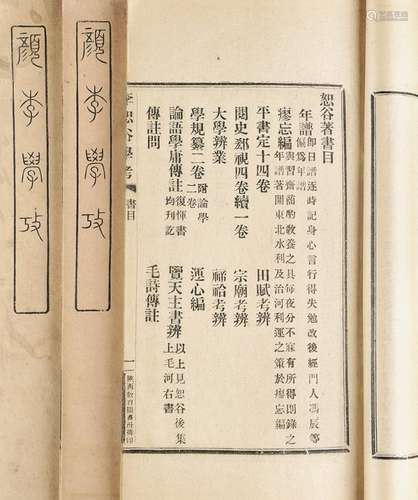 顏李學攷
顏李學攷
恕谷著書目
年譜 即日譜逐時記身心言行得失勉改後經門人馮辰等
編爲年譜
瘳忘編 與習齋商酌敎養之具每夜分不寐有所得則錄之
年譜著關東北水利及治河利運之策於瘳忘編
平書定十四卷 田賦考辨
閱史郄視四卷續一卷 宗廟考辨
大學辨業 禘祫考辨
學規纂二卷 附論學
二卷
論語學庸傳註 復惲書
均刋訖
覽天主書辨 以上見恕谷後集
上毛河右書
傳註問 毛詩傳註
李恕谷學考 書目
一